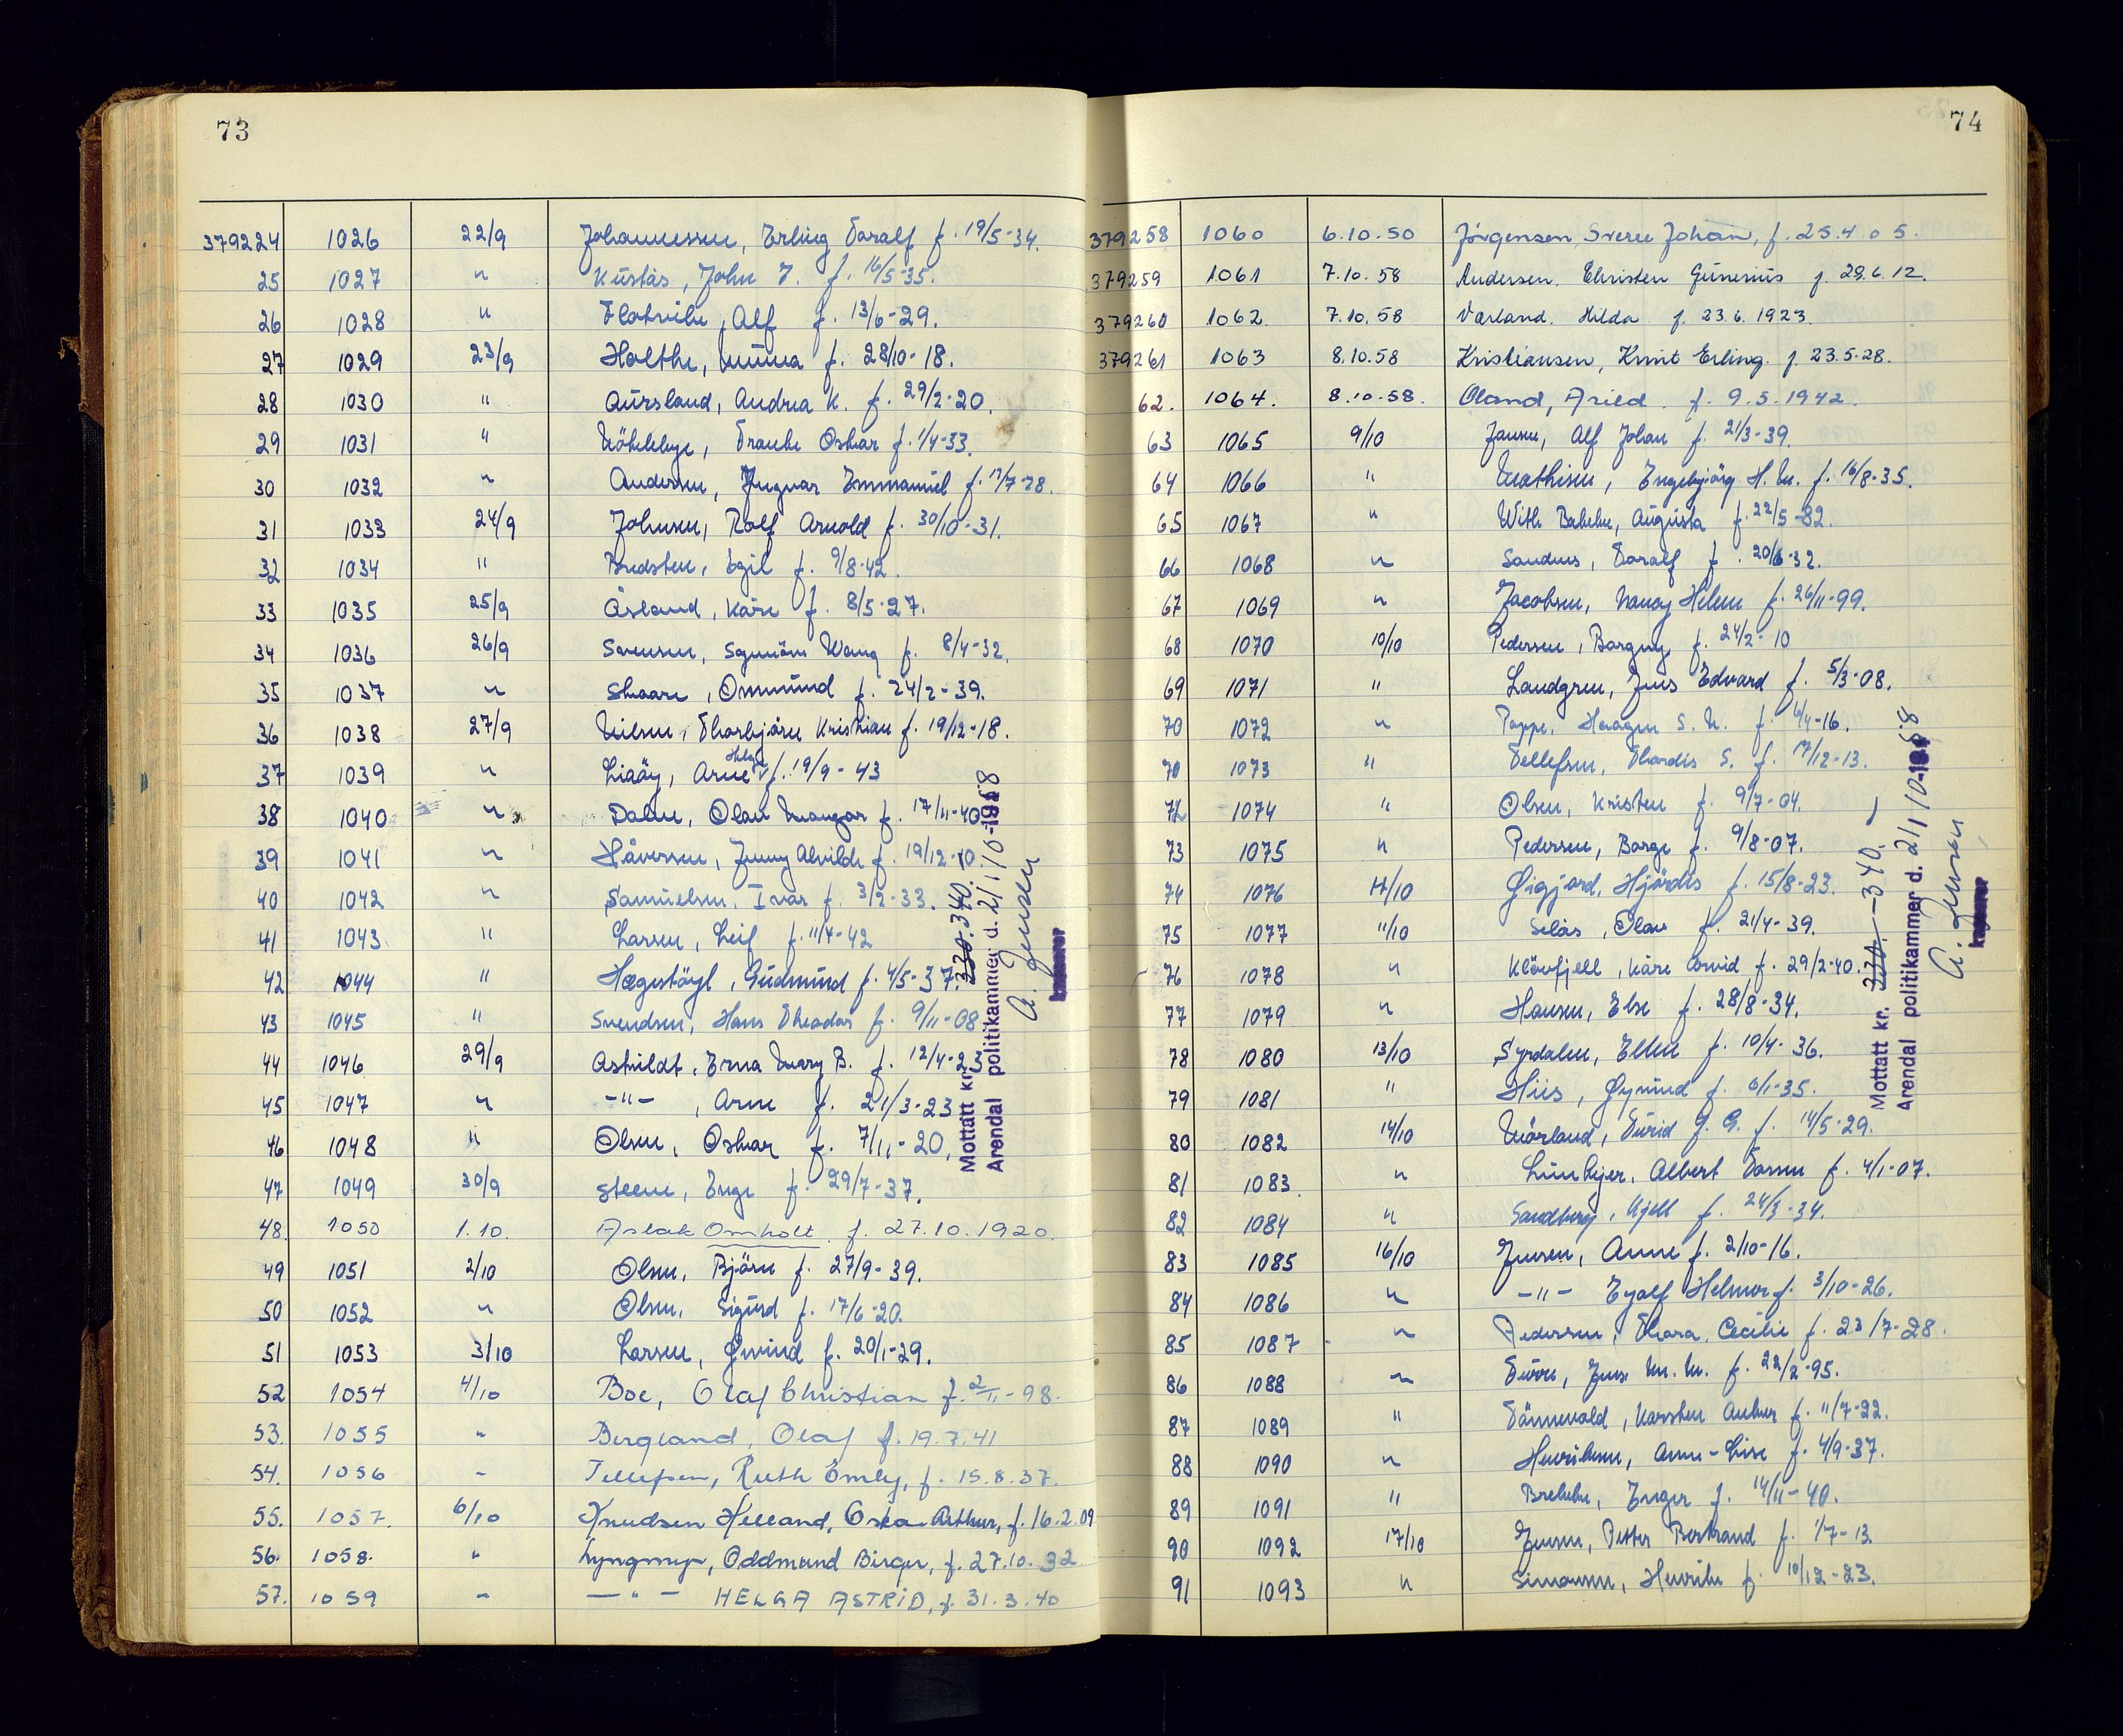 73
379224 1026 22/9 Johannessen, Erling Toralf f. 19/5-34.
25 1027 " Kustås, John T. f. 16/5-35.
26 1028 " Flatvik, Alf f. 13/6-29.
27 1029 23/9 Holthe, Minna f. 28/10-18.
28 1030 " Aursland, Andrea K. f. 29/2-20.
29 1031 " Frank Oskar f. 1/4-33.
30 1032 " Andersen, Yngvar Emmanuel f. 17/7-28.
31 1033 24/9 Johnsen, Rolf Arnold f. 30/10-31.
32 1034 " Bredsten, Egil f. 9/8-42.
33 1035 25/9 Åsland, Kåre f. 8/5-27.
34 1036 26/9 Svensen, Sigmünn Wang f. 8/4-32.
35 1037 " Skaare, Osmund f. 24/2-39.
36 1038 27/9 Nilsen, Thorbjörn Kristian f. 19/12-18.
37 1039 " Liaöy, Arne Helge f. 19/9-43
38 1040 " Dalen, Olav Magnar f. 17/11-40
39 1041 " Håversen, Jenny Alvilde f. 19/12-10.
40 1042 " Samuelsen, Ivar f. 3/2-33.
41 1043 " Larsen, Leif f. 11/4-42
42 1044 " Hægestöyl, Gudmund f. 4/5-37.
43 1045 " Svendsen, Hans Theodor f. 9/11-08
44 1046 29/9 Askildt, Erna Mary B. f. 12/4-23
45 1047 " -"- , Arne f. 21/3-23
46 1048 " Olsen, Oskar f. 7/11-20,
47 1049 30/9 Steen, Inge f. 29/7-37.
48. 1050 1.10. Aslak Omholt f. 27.10.1920.
49 1051 2/10 Olsen, Björn f. 27/9-39.
50 1052 " Olsen, Sigurd f. 17/6-20.
51 1053 3/10 Larsen, Øivind f. 20/1-29.
52 1054 4/10 Boe, Olaf Christian f. 2/11-98.
53. 1055 " Bergland, Olaf f. 19.7.41
54. 1056 " Tellefsen, Ruth Emly, f. 15.8.37.
55. 1057. 6/10 Knudsen Helland, Oskar Arthur, f. 16.2.09
56. 1058. " Lyngmyr, Oddmund Birger, f. 27.10.32
57. 1059 " —"— HELGA ASTRID, f. 31.3.40
Mottatt kr. 330. 340.
Arendal politikammer d. 2/10-1958
A. Jensen
kasserer
74
379258 1060 6.10.50 Jörgensen, Sverre Johan, f. 25.4.05.
379259 1061 7.10.58 Andersen, Christen Gunerius f. 29.6.12.
379260 1062. 7.10.58 Værland, Hilda f. 23.6.1923.
379261 1063 8.10.58 Kristiansen, Knut Erling. f. 23.5.28.
62. 1064. 8.10.58. Oland, Arild. f. 9.5.1942.
63 1065 9/10 Jansen, Alf Johan f. 21/3-39.
64 1066 " Mathisen, Engebjörg H. M. f. 16/8-35.
65 1067 " With Bakke, Augusta f. 22/5-82.
66 1068 " Sandnes, Toralf f. 20/6-32.
67 1069 " Jacobsen, Nancy Helene f. 26/11-99.
68 1070 10/10 Pedersen, Borgny f. 24/2-10
69 1071 " Landgren, Jens Edvard f. 5/3-08.
70 1072 " Poppe, Haagen S. N. f. 6/4-16.
70 1073 " Tellefsen, Thordis S. f. 17/12-13.
72 1074 " Olsen, Kristen f. 9/7-04.
73 1075 " Pedersen, Borge f. 9/8-07.
74 1076 11/10 Øigjord, Hjördis f. 15/8-23.
75 1077 11/10 Selås, Olav f. 21/4-39.
76 1078 " Klövfjell, Kåre Arvid f. 29/2-40.
77 1079 " Hansen, Else f. 28/8-34.
78 1080 13/10 Syrdalen, Ellen f. 10/4-36.
79 1081 " Hiis, Øymund f. 6/1-35.
80 1082 14/10 Mörland, Turid G. G. f. 14/5-29.
81 1083 " Albert f. 4/1-07.
82 1084 " Sandberg, Kjell f. 24/3-34.
83 1085 16/10 Jensen, Anne f. 2/10-16.
84 1086 " -"- Eyolf Helmer f. 3/10-26.
85 1087 " Pedersen, Thora Cecilie f. 23/7-28.
86 1088 " Jens M. M. f. 22/2-95.
87 1089 " Tönnevold, Karsten f. 11/7-22.
88 1090 " Henriksen, Anne-Lise f. 4/9-37.
89 1091 " Brekke, Inger f. 14/11-40.
90 1092 17/10 Jensen, Petter Bertrand f. 1/7-13.
91 1093 " Simonsen, Henrik f. 10/12-23.
Mottatt kr. 330.- 340,-
Arendal politikammer d. 21/10-1958
A. Jensen
kasserer